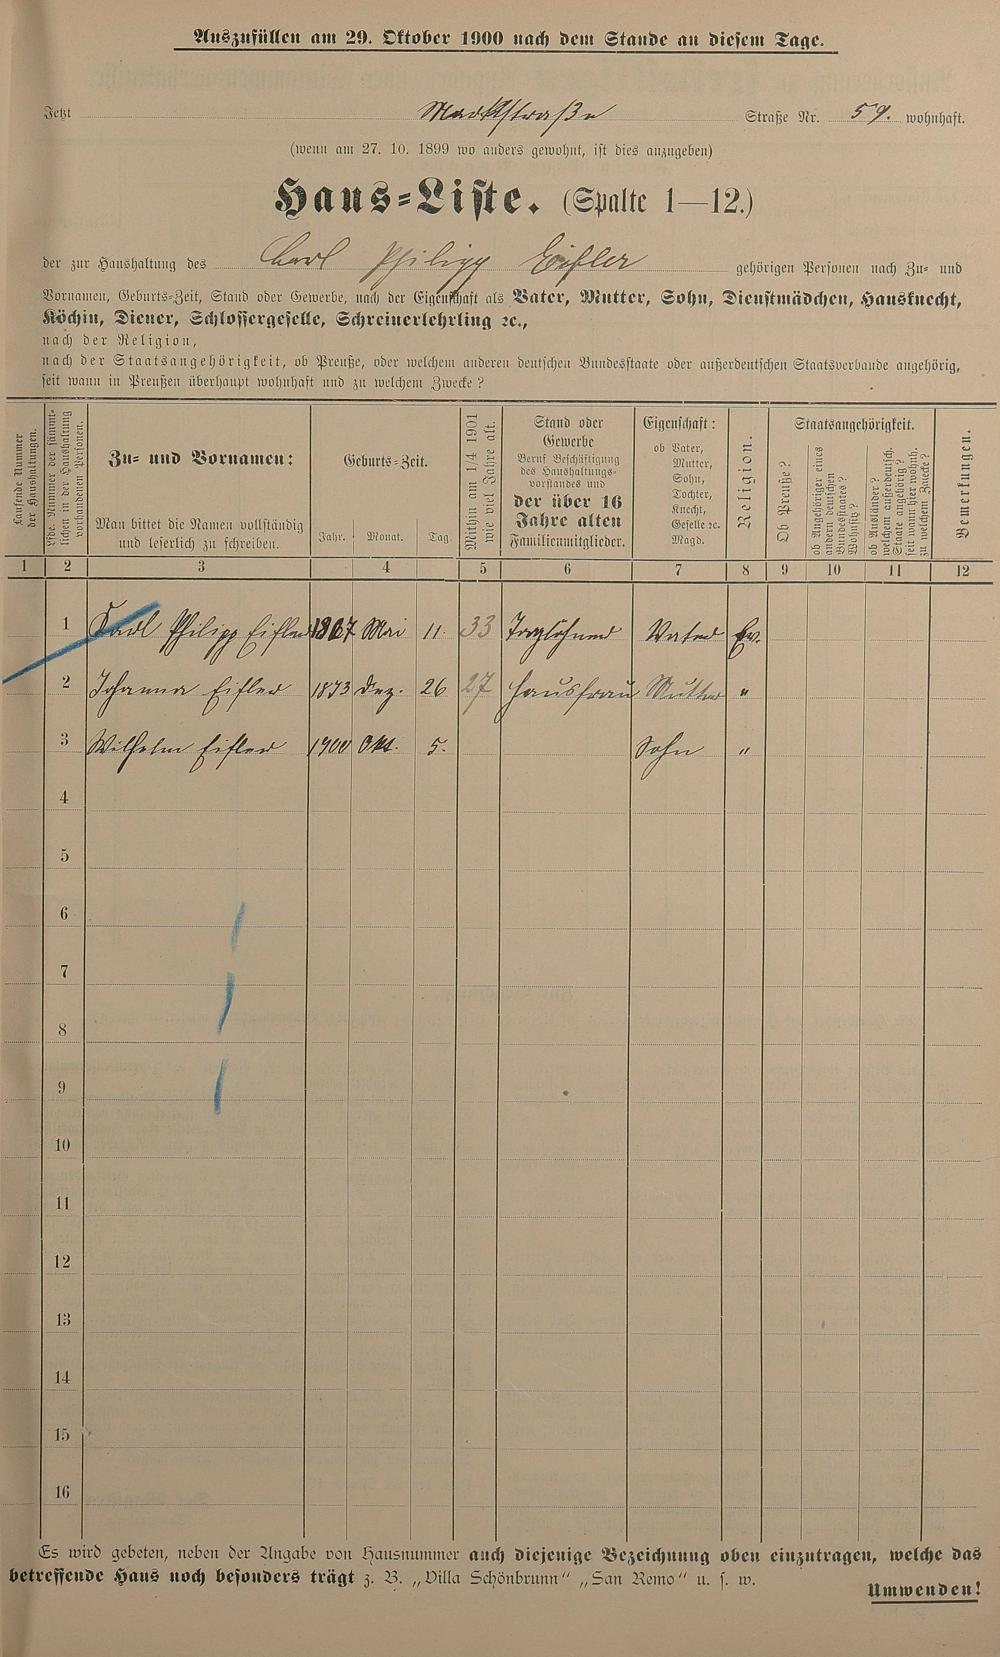 Auszufüllen am 29. Oktober 1900 nach dem Stande an diesem Tage.
Jetzt Marktstraße Straße Nr. 59. wohnhaft.
(wenn am 27. 10. 1899 wo anders gewohnt, ist dies anzugeben)
Haus-Liste. (Spalte 1—12.)
der zur Haushaltung des Carl Philipp Eifler gehörigen Personen nach Zu- und
Vornamen, Geburts-Zeit, Stand oder Gewerbe, nach der Eigenschaft als Vater, Mutter, Sohn, Dienstmädchen, Hausknecht,
Köchin, Diener, Schlossergeselle, Schreinerlehrling ꝛc.,
nach der Religion,
nach der Staatsangehörigkeit, ob Preuße, oder welchem anderen deutschen Bundesstaate oder außerdeutschen Staatsverbande angehörig,
seit wann in Preußen überhaupt wohnhaft und zu welchem Zwecke?
Laufende Nummer
der Haushaltungen.
Lfde. Nummer der sämmt-
lichen in der Haushaltung
vorhandenen Personen.
Zu- und Vornamen:
Man bittet die Namen vollständig
und leserlich zu schreiben.
Geburts-Zeit.
Jahr. Monat. Tag.
Mithin am 1/4 1901
wie viel Jahre alt.
Stand oder
Gewerbe
Beruf Beschäftigung
des Haushaltungs-
vorstandes und
der über 16
Jahre alten
Familienmitglieder.
Eigenschaft:
ob Vater,
Mutter,
Sohn,
Tochter,
Knecht,
Geselle ꝛc.
Magd.
Religion.
Staatsangehörigkeit.
Ob Preuße?
ob Angehöriger eines
andern deutschen
Bundesstaates?
Wohnsitz?
ob Ausländer?
welchem außerdeutsch.
Staate angehörig?
seit wann hier wohnh.
zu welchem Zwecke?
Bemerkungen.
1 2 3 4 5 6 7 8 9 10 11 12
1 Karl Philipp Eifler 1867 Mai 11. 33 Taglöhner Vater Ev.
2 Johanna Eifler 1873 Dez. 26 27 Hausfrau Mutter "
3 Wilhelm Eifler 1900 Okt. 5. Sohn "
4
5
6
7
8
9
10
11
12
13
14
15
16
Es wird gebeten, neben der Angabe von Hausnummer auch diejenige Bezeichnung oben einzutragen, welche das
betreffende Haus noch besonders trägt z. B. „Villa Schönbrunn" „San Remo" u. s. w.
Umwenden!